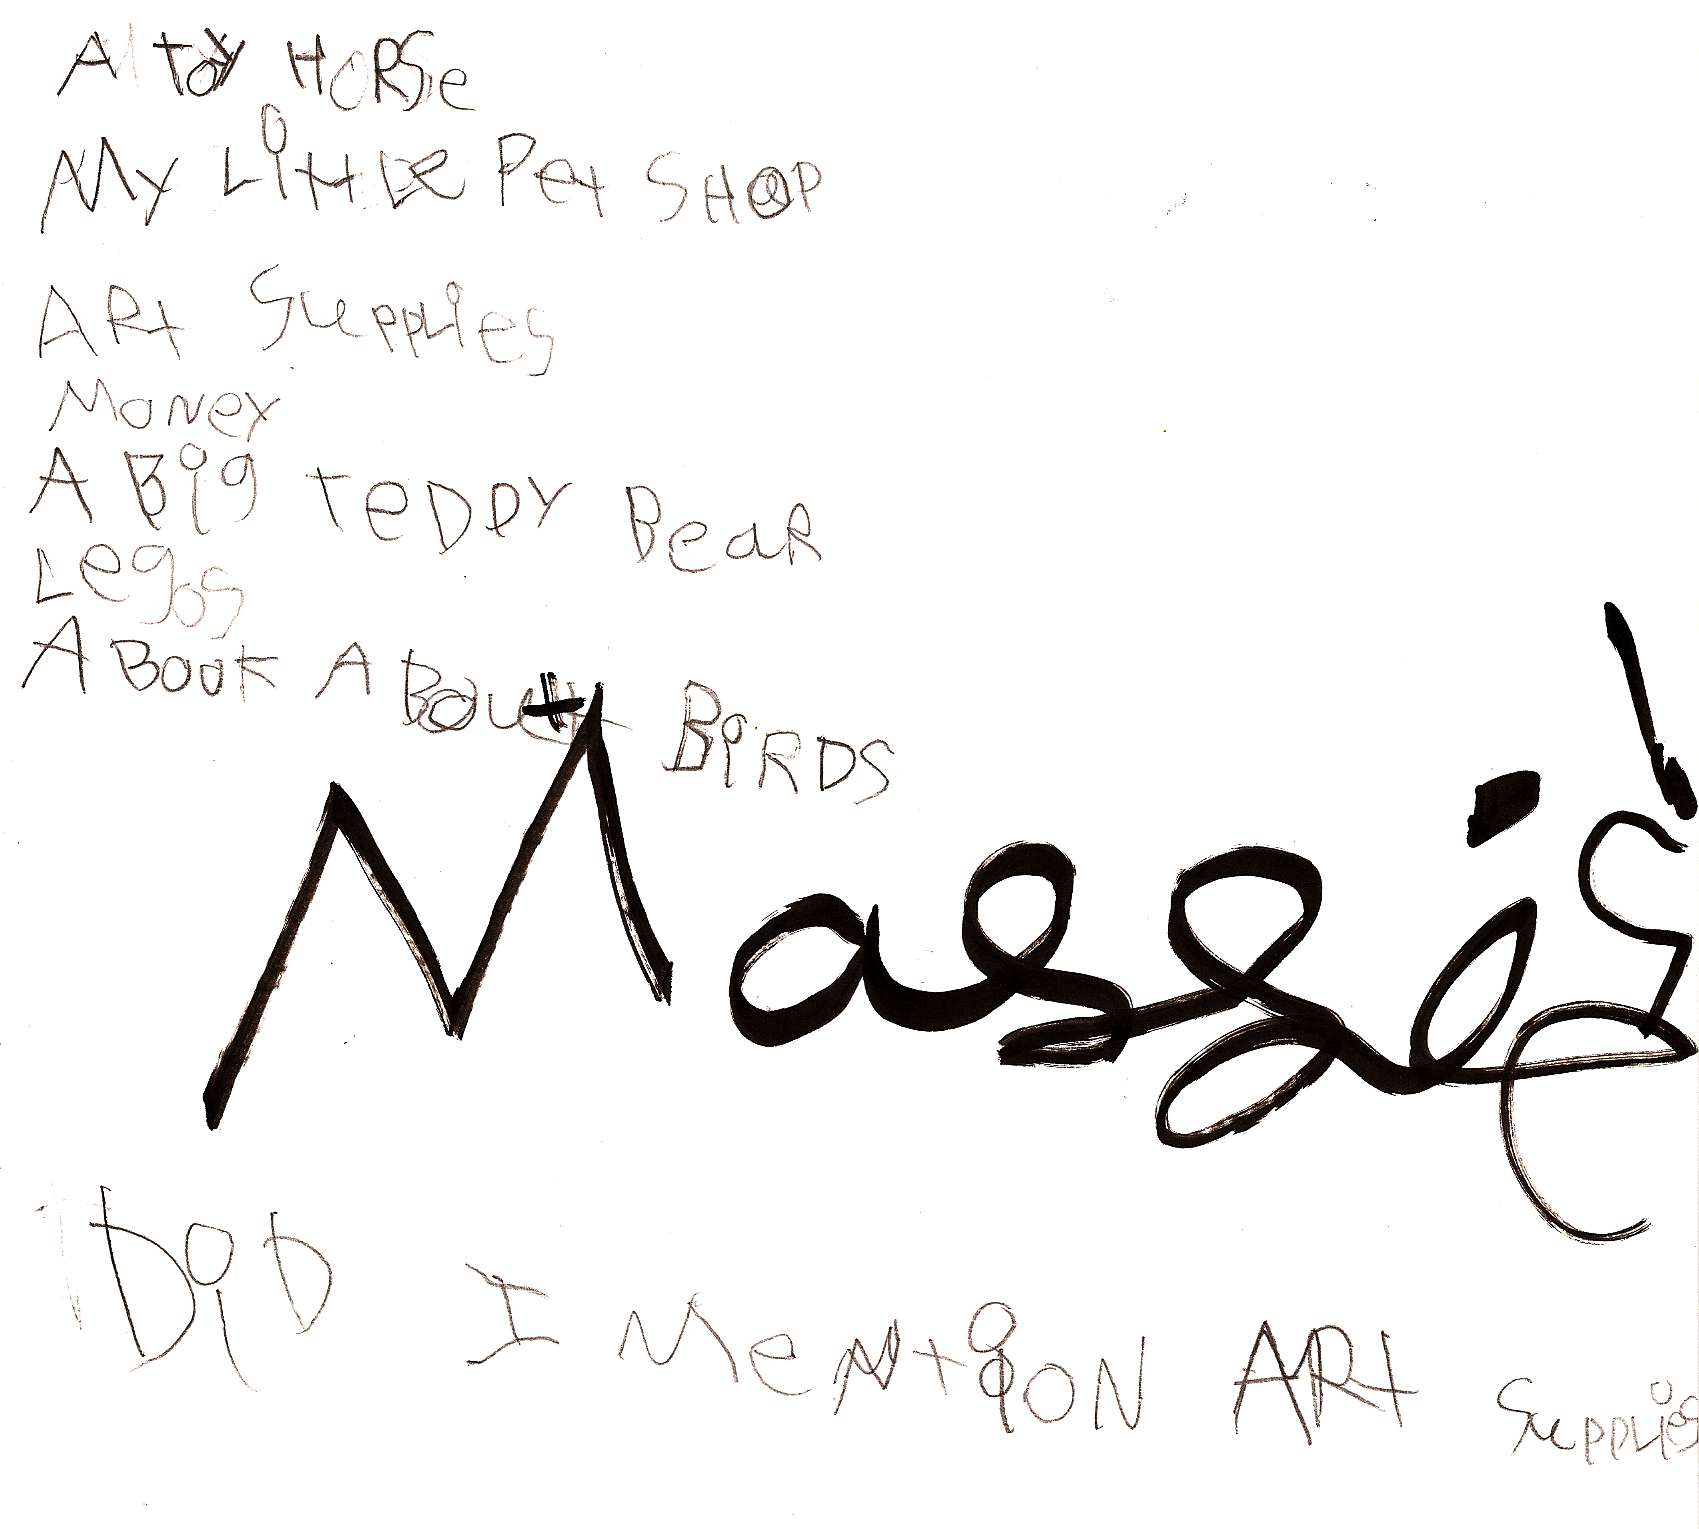 A TOY HORSe
My LittLe Pet SHOP
ARt SuppLies
MoNey
A Big teDDY BeaR
Legos
A BOOK A Bout BiRDS
Massie's!
DiD I MeNtioN ARt SuppLies